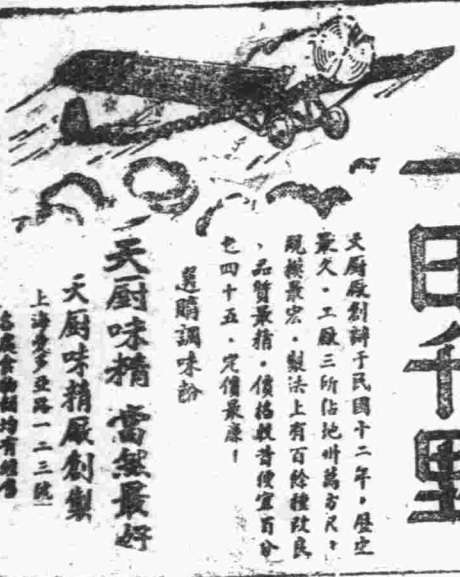 一日千里
天厨厰創辦于民國十二年，歷史
最久，工厰三所佔地卅萬方尺，
規模最宏，製法上有百餘種改良
，品質最精，價格較前便宜百分
之四十五，定價最廉！
選購調味粉
天厨味精 當然最好
天厨味精厰創製
上海愛多亞路一二三號
各店食物號均有經售